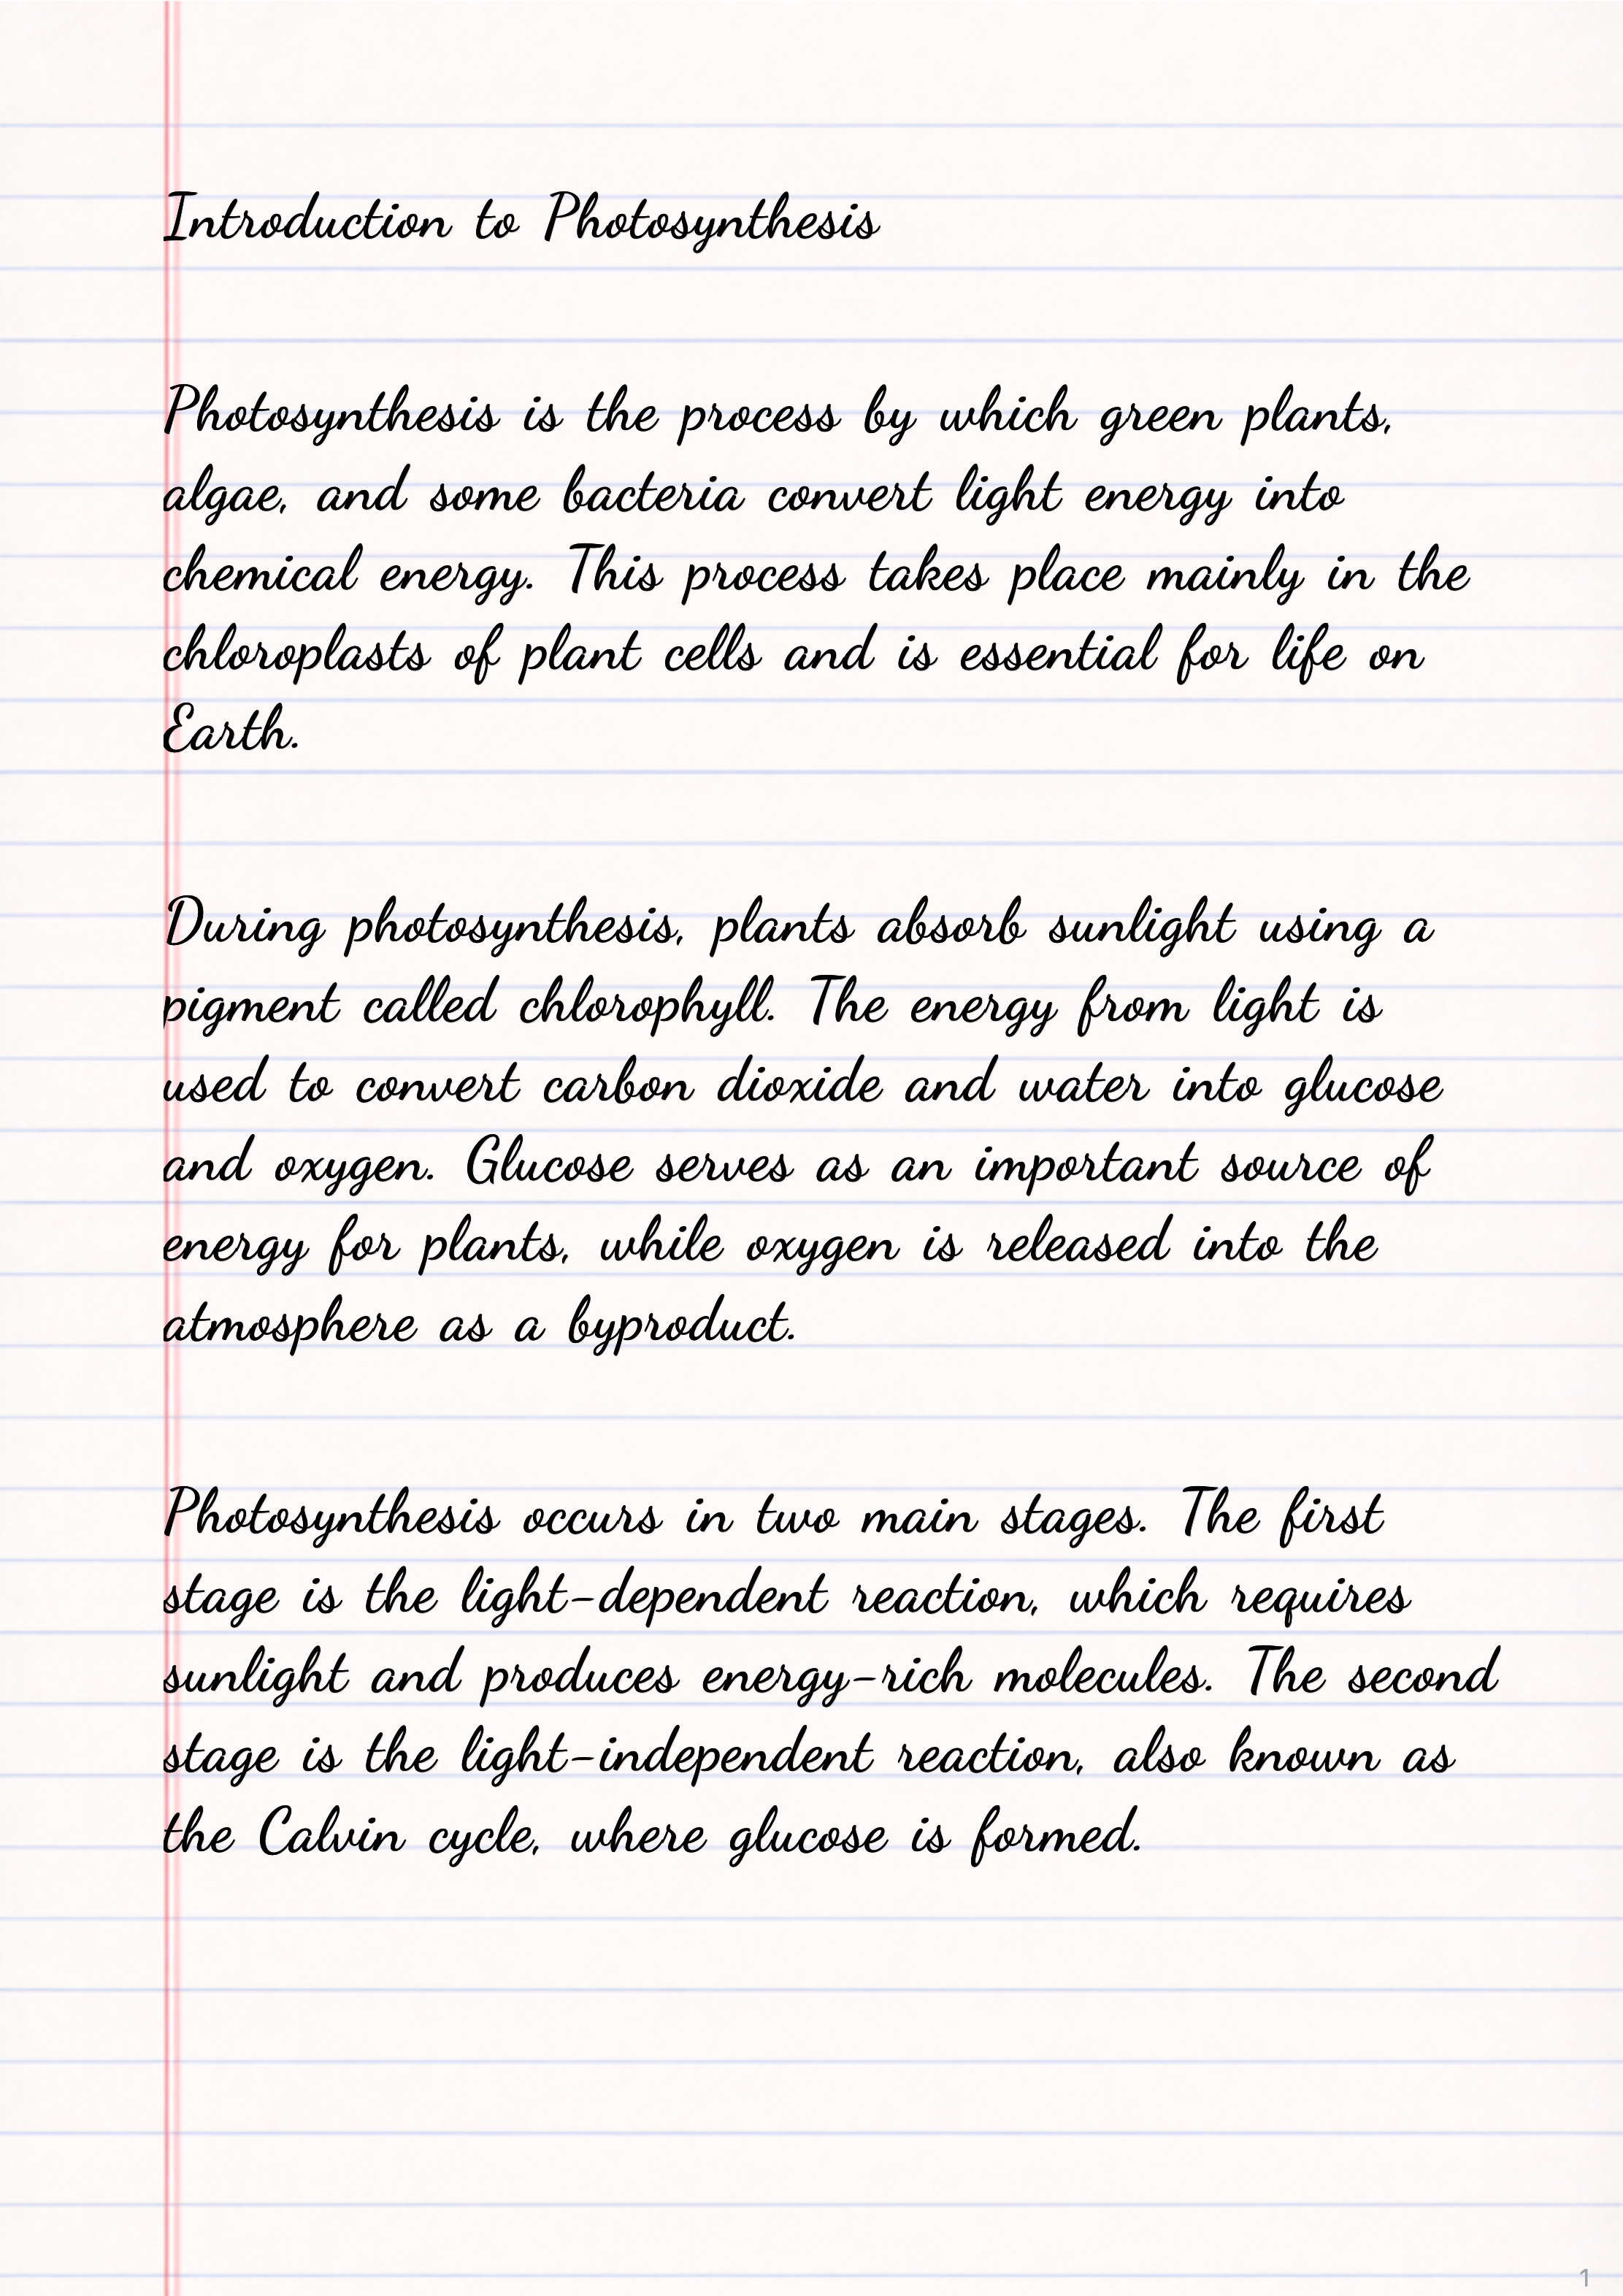 Introduction to Photosynthesis
Photosynthesis is the process by which green plants,
algae, and some bacteria convert light energy into
chemical energy. This process takes place mainly in the
chloroplasts of plant cells and is essential for life on
Earth.
During photosynthesis, plants absorb sunlight using a
pigment called chlorophyll. The energy from light is
used to convert carbon dioxide and water into glucose
and oxygen. Glucose serves as an important source of
energy for plants, while oxygen is released into the
atmosphere as a byproduct.
Photosynthesis occurs in two main stages. The first
stage is the light-dependent reaction, which requires
sunlight and produces energy-rich molecules. The second
stage is the light-independent reaction, also known as
the Calvin cycle, where glucose is formed.
1